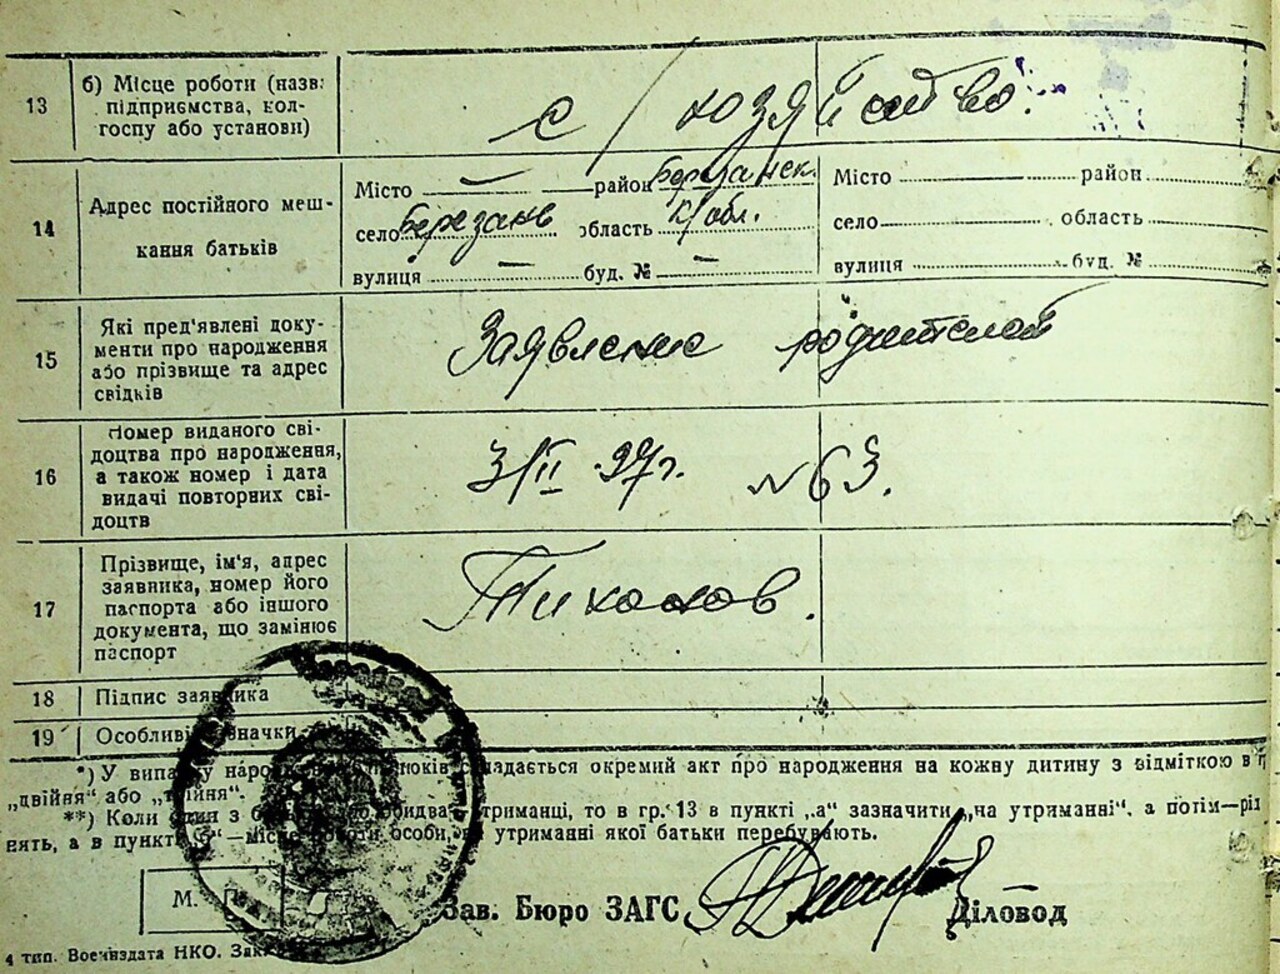 13
б) Місце роботи (назв:
підприємства, кол-
госпу або установи)
с/хозяйство.
14
Адрес постійного меш-
кання батьків
Місто — район Березанск.
село Березань область К/обл.
вулиця — буд. № —
Місто район
село область
вулиця буд. №
15
Які пред'явлені доку-
менти про народження
або прізвище та адрес
свідків
Заявление родителей
16
Номер виданого сві-
доцтва про народження,
а також номер і дата
видачі повторних сві-
доцтв
3/II 97г. №63.
17
Прізвище, ім'я, адрес
заявника, номер його
паспорта або іншого
документа, що замінює
паспорт
Тихонов.
18
Підпис заявника
19
Особливі зазначки
*) У випадку народж складається окремий акт про народження на кожну дитину з відміткою в
„двійня“ або „трійня“.
**) Коли один з обидва утриманці, то в гр. 13 в пункті „а“ зазначити „на утриманні“, а потім—рід
нять, а в пункті —місце роботи особи, на утриманні якої батьки перебувають.
М. П.
Зав. Бюро ЗАГС
Діловод
4 тип. Воениздата НКО. Зак.